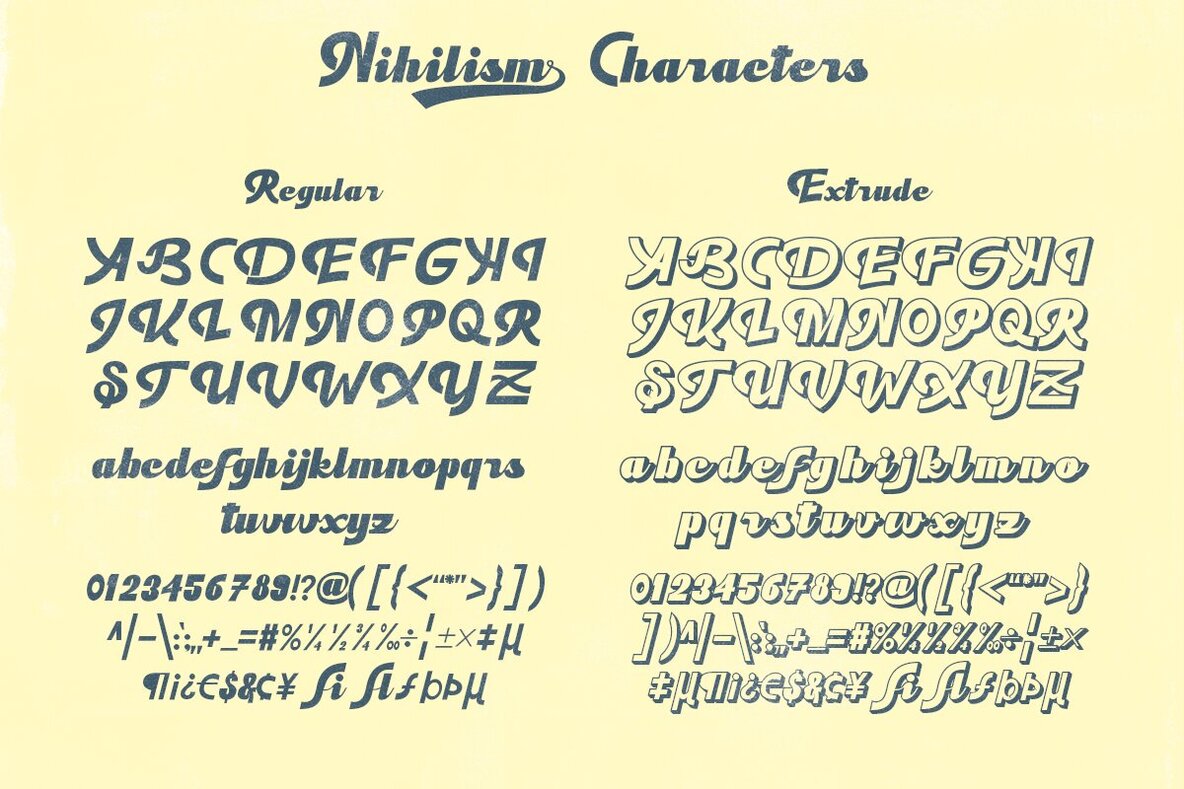 Nihilism Characters
Regular
ABCDEFGHI
JKLMNOPQR
STUVWXYZ
abcdefghijklmnopqrs
tuvwxyz
0123456789!?@([{<“‘*’”>}])
^/|-\:;,,+_=#%¼½¾‰÷¦±×‡µ
¶¡¿€$&¢¥ fi fl ƒþÞµ
Extrude
ABCDEFGHI
JKLMNOPQR
STUVWXYZ
abcdefghijklmno
pqrstuvwxyz
0123456789!?@([{<“‘*’”>}
])^/|-\:;,,+_=#%¼½¾‰÷¦±×
‡µ¶¡¿€$&¢¥ fi fl ƒþÞµ